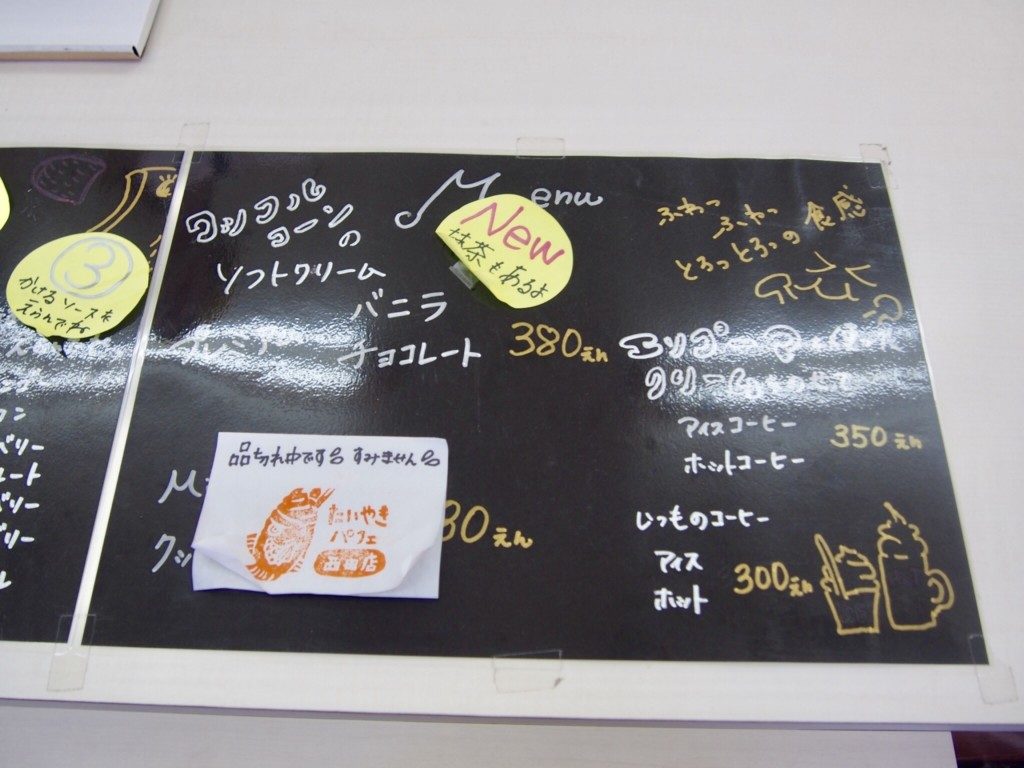 ③
かけるソースを
えらんでね
コン
ベリー
レート
ベリー
ベリー
ル
Menu
New
抹茶もあるよ
ワッフル
コーン
の
ソフトクリーム
バニラ
プレミアム
チョコレート
380えん
品切れ中です。すみません。
たいやき
パフェ
M
クッ
80えん
ふわっ
ふわっ
とろっとろっの食感
クリームのせて
アイスコーヒー
ホットコーヒー
350えん
いつものコーヒー
アイス
ホット
300えん